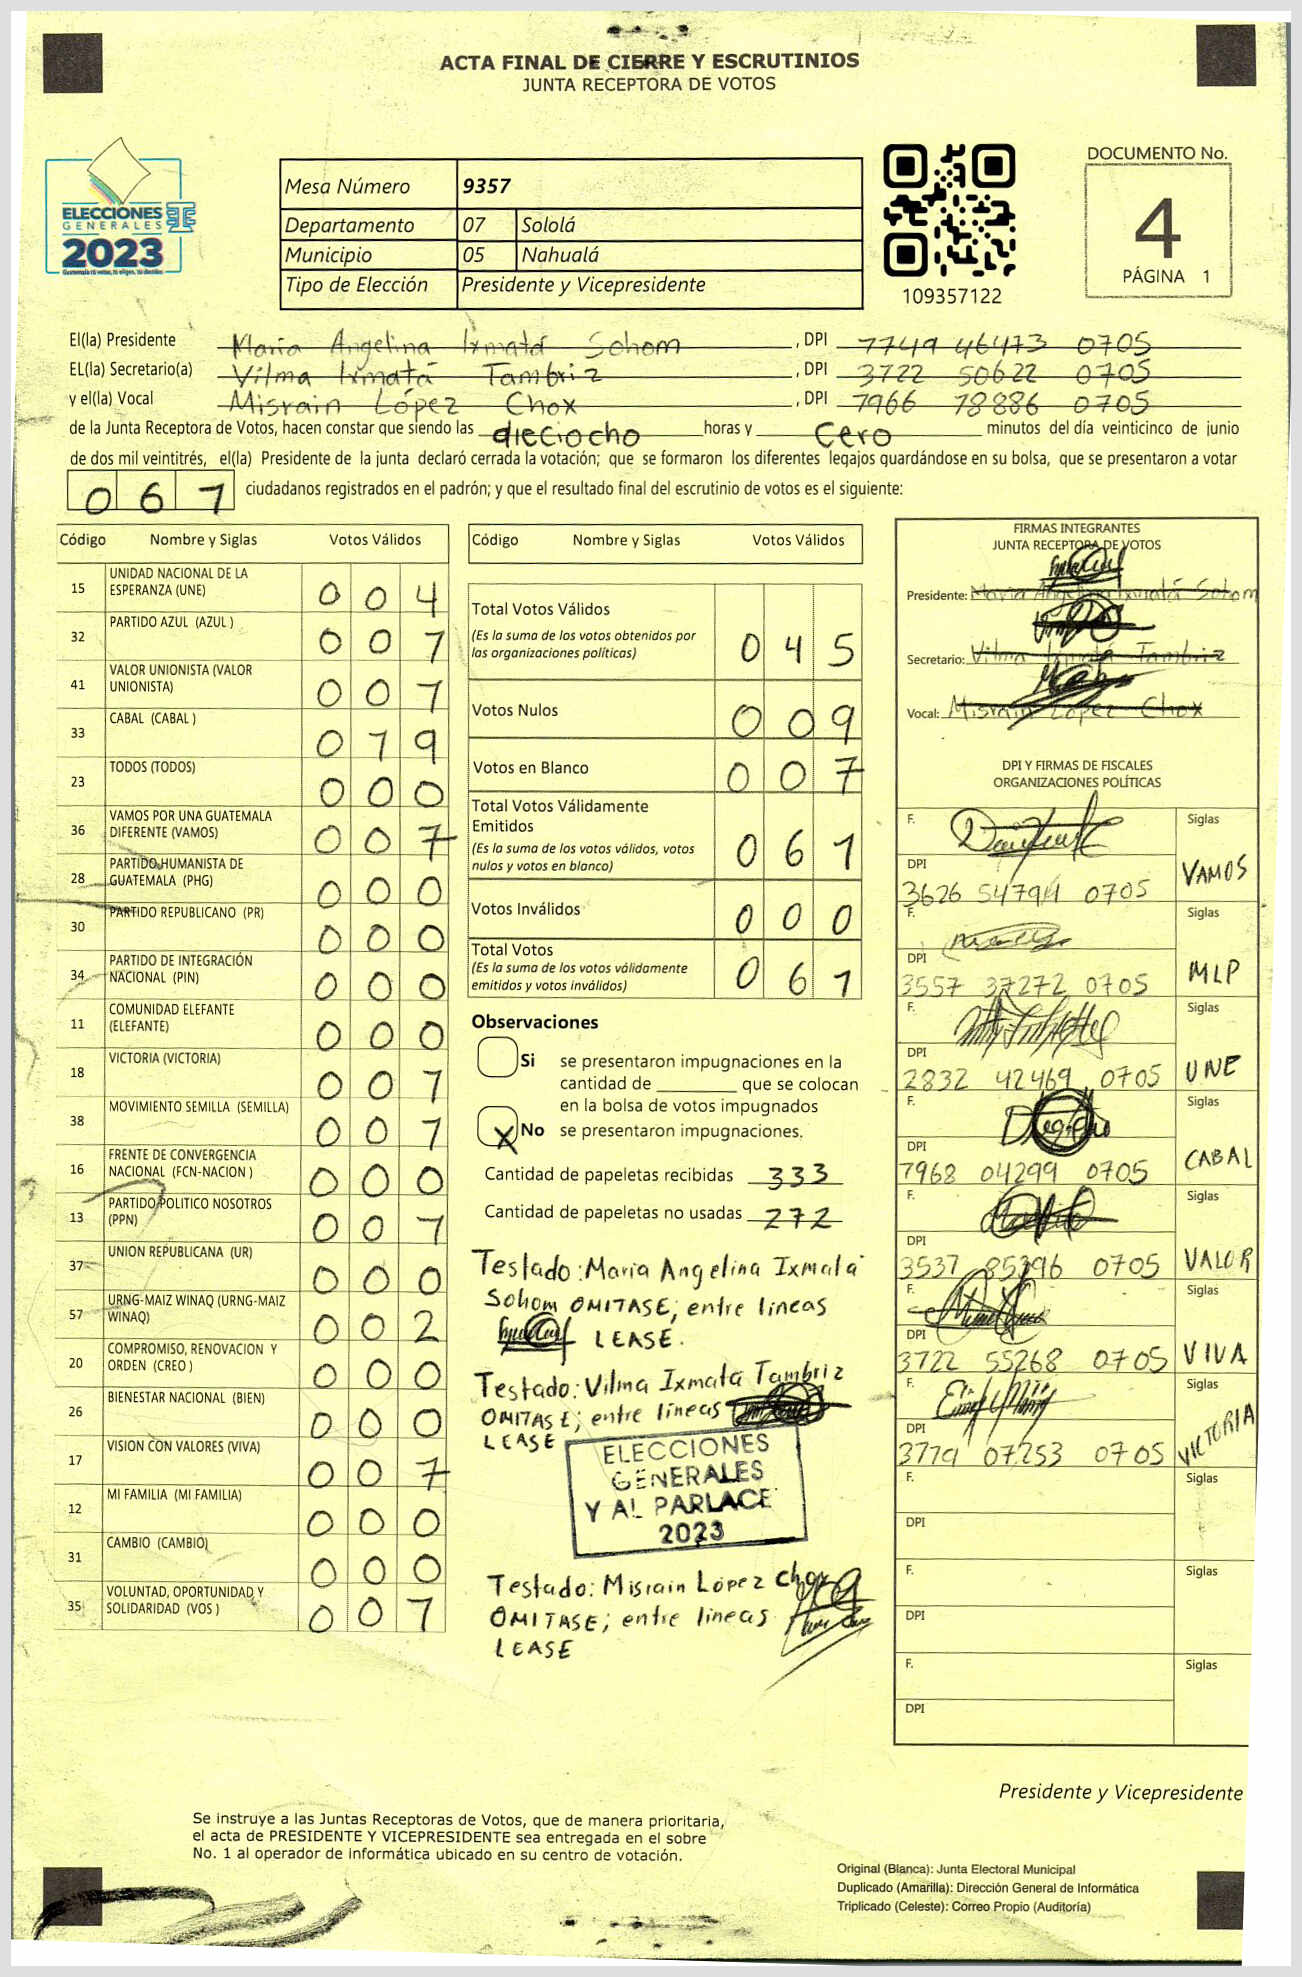 ACTA FINAL DE CIERRE Y ESCRUTINIOS
JUNTA RECEPTORA DE VOTOS
ELECCIONES
GENERALES
2023
Mesa Número 9357
Departamento 07 Sololá
Municipio 05 Nahualá
Tipo de Elección Presidente y Vicepresidente
109357122
DOCUMENTO No.
4
PÁGINA 1
El(la) Presidente Maria Angelina Ixmatá Sohom , DPI 7749 46473 0705
EL(la) Secretario(a) Vilma Ixmatá Tambriz , DPI 3722 50622 0705
y el(la) Vocal Misrain López Chox , DPI 7966 78886 0705
de la Junta Receptora de Votos, hacen constar que siendo las dieciocho horas y Cero minutos del día veinticinco de junio
de dos mil veintitrés, el(la) Presidente de la junta declaró cerrada la votación; que se formaron los diferentes legajos guardándose en su bolsa, que se presentaron a votar
061 ciudadanos registrados en el padrón; y que el resultado final del escrutinio de votos es el siguiente:
Código Nombre y Siglas Votos Válidos
15 UNIDAD NACIONAL DE LA
ESPERANZA (UNE) 004
32 PARTIDO AZUL (AZUL ) 001
41 VALOR UNIONISTA (VALOR
UNIONISTA) 001
33 CABAL (CABAL ) 019
23 TODOS (TODOS) 000
36 VAMOS POR UNA GUATEMALA
DIFERENTE (VAMOS) 007
28 PARTIDO HUMANISTA DE
GUATEMALA (PHG) 000
30 PARTIDO REPUBLICANO (PR) 000
34 PARTIDO DE INTEGRACIÓN
NACIONAL (PIN) 000
11 COMUNIDAD ELEFANTE
(ELEFANTE) 000
18 VICTORIA (VICTORIA) 001
38 MOVIMIENTO SEMILLA (SEMILLA) 001
16 FRENTE DE CONVERGENCIA
NACIONAL (FCN-NACION ) 000
13 PARTIDO POLITICO NOSOTROS
(PPN) 001
37 UNION REPUBLICANA (UR) 000
57 URNG-MAIZ WINAQ (URNG-MAIZ
WINAQ) 002
20 COMPROMISO, RENOVACION Y
ORDEN (CREO ) 000
26 BIENESTAR NACIONAL (BIEN) 000
17 VISION CON VALORES (VIVA) 007
12 MI FAMILIA (MI FAMILIA) 000
31 CAMBIO (CAMBIO) 000
35 VOLUNTAD, OPORTUNIDAD Y
SOLIDARIDAD (VOS ) 001
Código Nombre y Siglas Votos Válidos
Total Votos Válidos
(Es la suma de los votos obtenidos por
las organizaciones políticas) 045
Votos Nulos 009
Votos en Blanco 007
Total Votos Válidamente
Emitidos
(Es la suma de los votos válidos, votos
nulos y votos en blanco) 061
Votos Inválidos 000
Total Votos
(Es la suma de los votos válidamente
emitidos y votos inválidos) 061
Observaciones
Si se presentaron impugnaciones en la
cantidad de ________ que se colocan
en la bolsa de votos impugnados
X No se presentaron impugnaciones.
Cantidad de papeletas recibidas 333
Cantidad de papeletas no usadas 272
Testado: Maria Angelina Ixmatá
Sohom OMITASE; entre lineas
LEASE.
Testado: Vilma Ixmata Tambriz
OMITASE; entre lineas
LEASE
ELECCIONES
GENERALES
Y AL PARLACE
2023
Testado: Misrain López Chox
OMITASE; entre lineas
LEASE
FIRMAS INTEGRANTES
JUNTA RECEPTORA DE VOTOS
Presidente: Maria Angelina Ixmatá Sohom
Secretario: Vilma Ixmatá Tambriz
Vocal: Misrain López Chox
DPI Y FIRMAS DE FISCALES
ORGANIZACIONES POLÍTICAS
F. Siglas
DPI VAMOS
3626 54794 0705
F. Siglas
DPI MLP
3557 37272 0705
F. Siglas
DPI UNE
2832 42469 0705
F. Siglas
DPI CABAL
7968 04299 0705
F. Siglas
DPI VALOR
3537 85396 0705
F. Siglas
DPI VIVA
3722 55268 0705
F. Siglas
DPI VICTORIA
3779 07253 0705
F. Siglas
DPI
F. Siglas
DPI
F. Siglas
DPI
Presidente y Vicepresidente
Se instruye a las Juntas Receptoras de Votos, que de manera prioritaria,
el acta de PRESIDENTE Y VICEPRESIDENTE sea entregada en el sobre
No. 1 al operador de informática ubicado en su centro de votación.
Original (Blanca): Junta Electoral Municipal
Duplicado (Amarilla): Dirección General de Informática
Triplicado (Celeste): Correo Propio (Auditoría)